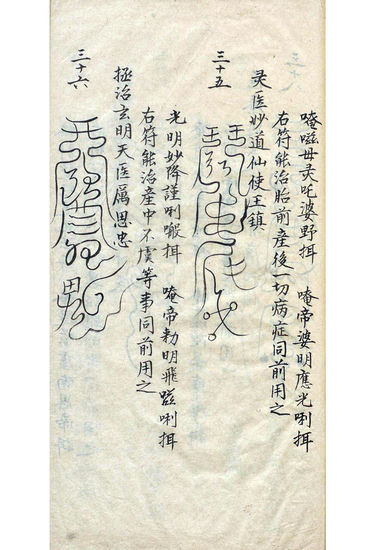 唵嗞毋灵吒婆野挕　唵帝婆明應光唎挕
右符能治胎前産後一切病症同前用之
灵医妙道仙使王鎮
三十五
光明妙降謹唎挕　唵帝勅明飛嗞唎挕
右符能治産中不虞等事同前用之
拯治玄明天医属思忠
三十六